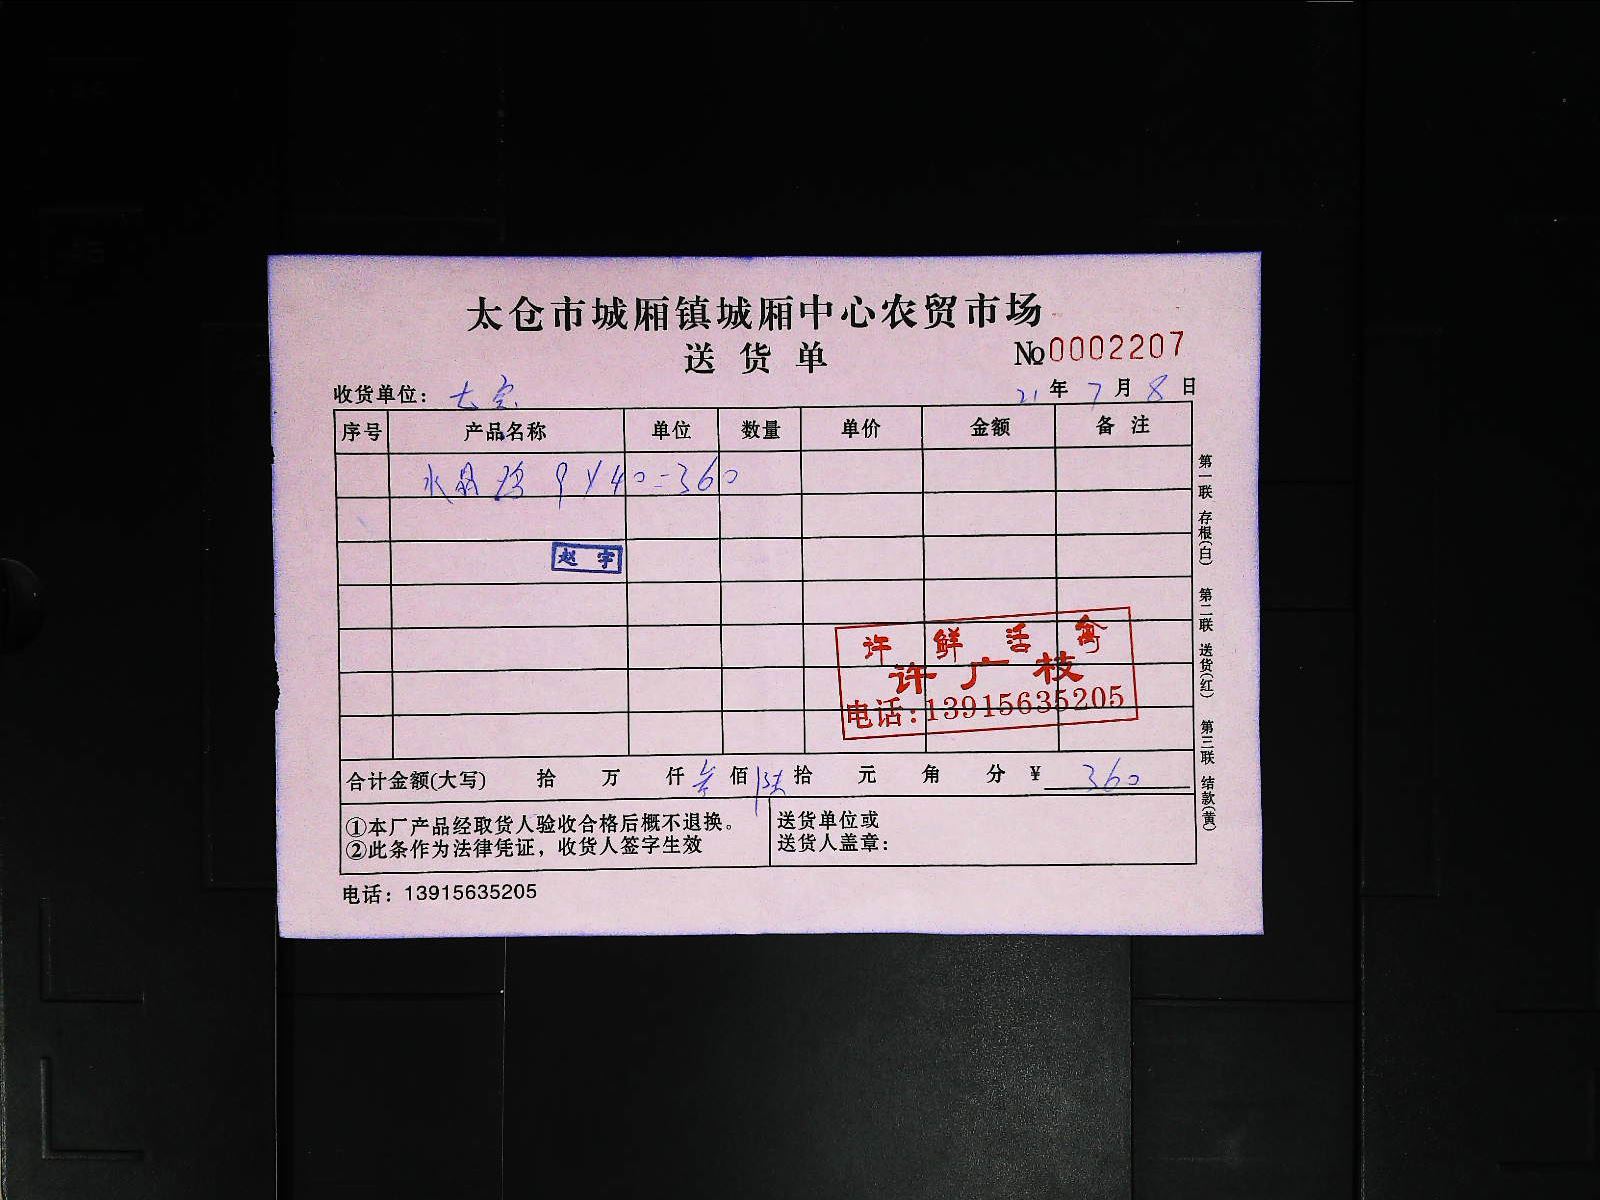 太仓市城厢镇城厢中心农贸市场
送货单
№0002207
收货单位：
21年7月8日
序号 产品名称 单位 数量 单价 金额 备注
水晶鸡 9×40=360
赵宇
许鲜活禽
许广枝
电话:13915635205
合计金额(大写) 拾 万 仟 叁佰 陆拾 元 角 分 ¥ 360
①本厂产品经取货人验收合格后概不退换。
②此条作为法律凭证，收货人签字生效
送货单位或
送货人盖章：
电话：13915635205
第一联 存根(白) 第二联 送货(红) 第三联 结款(黄)